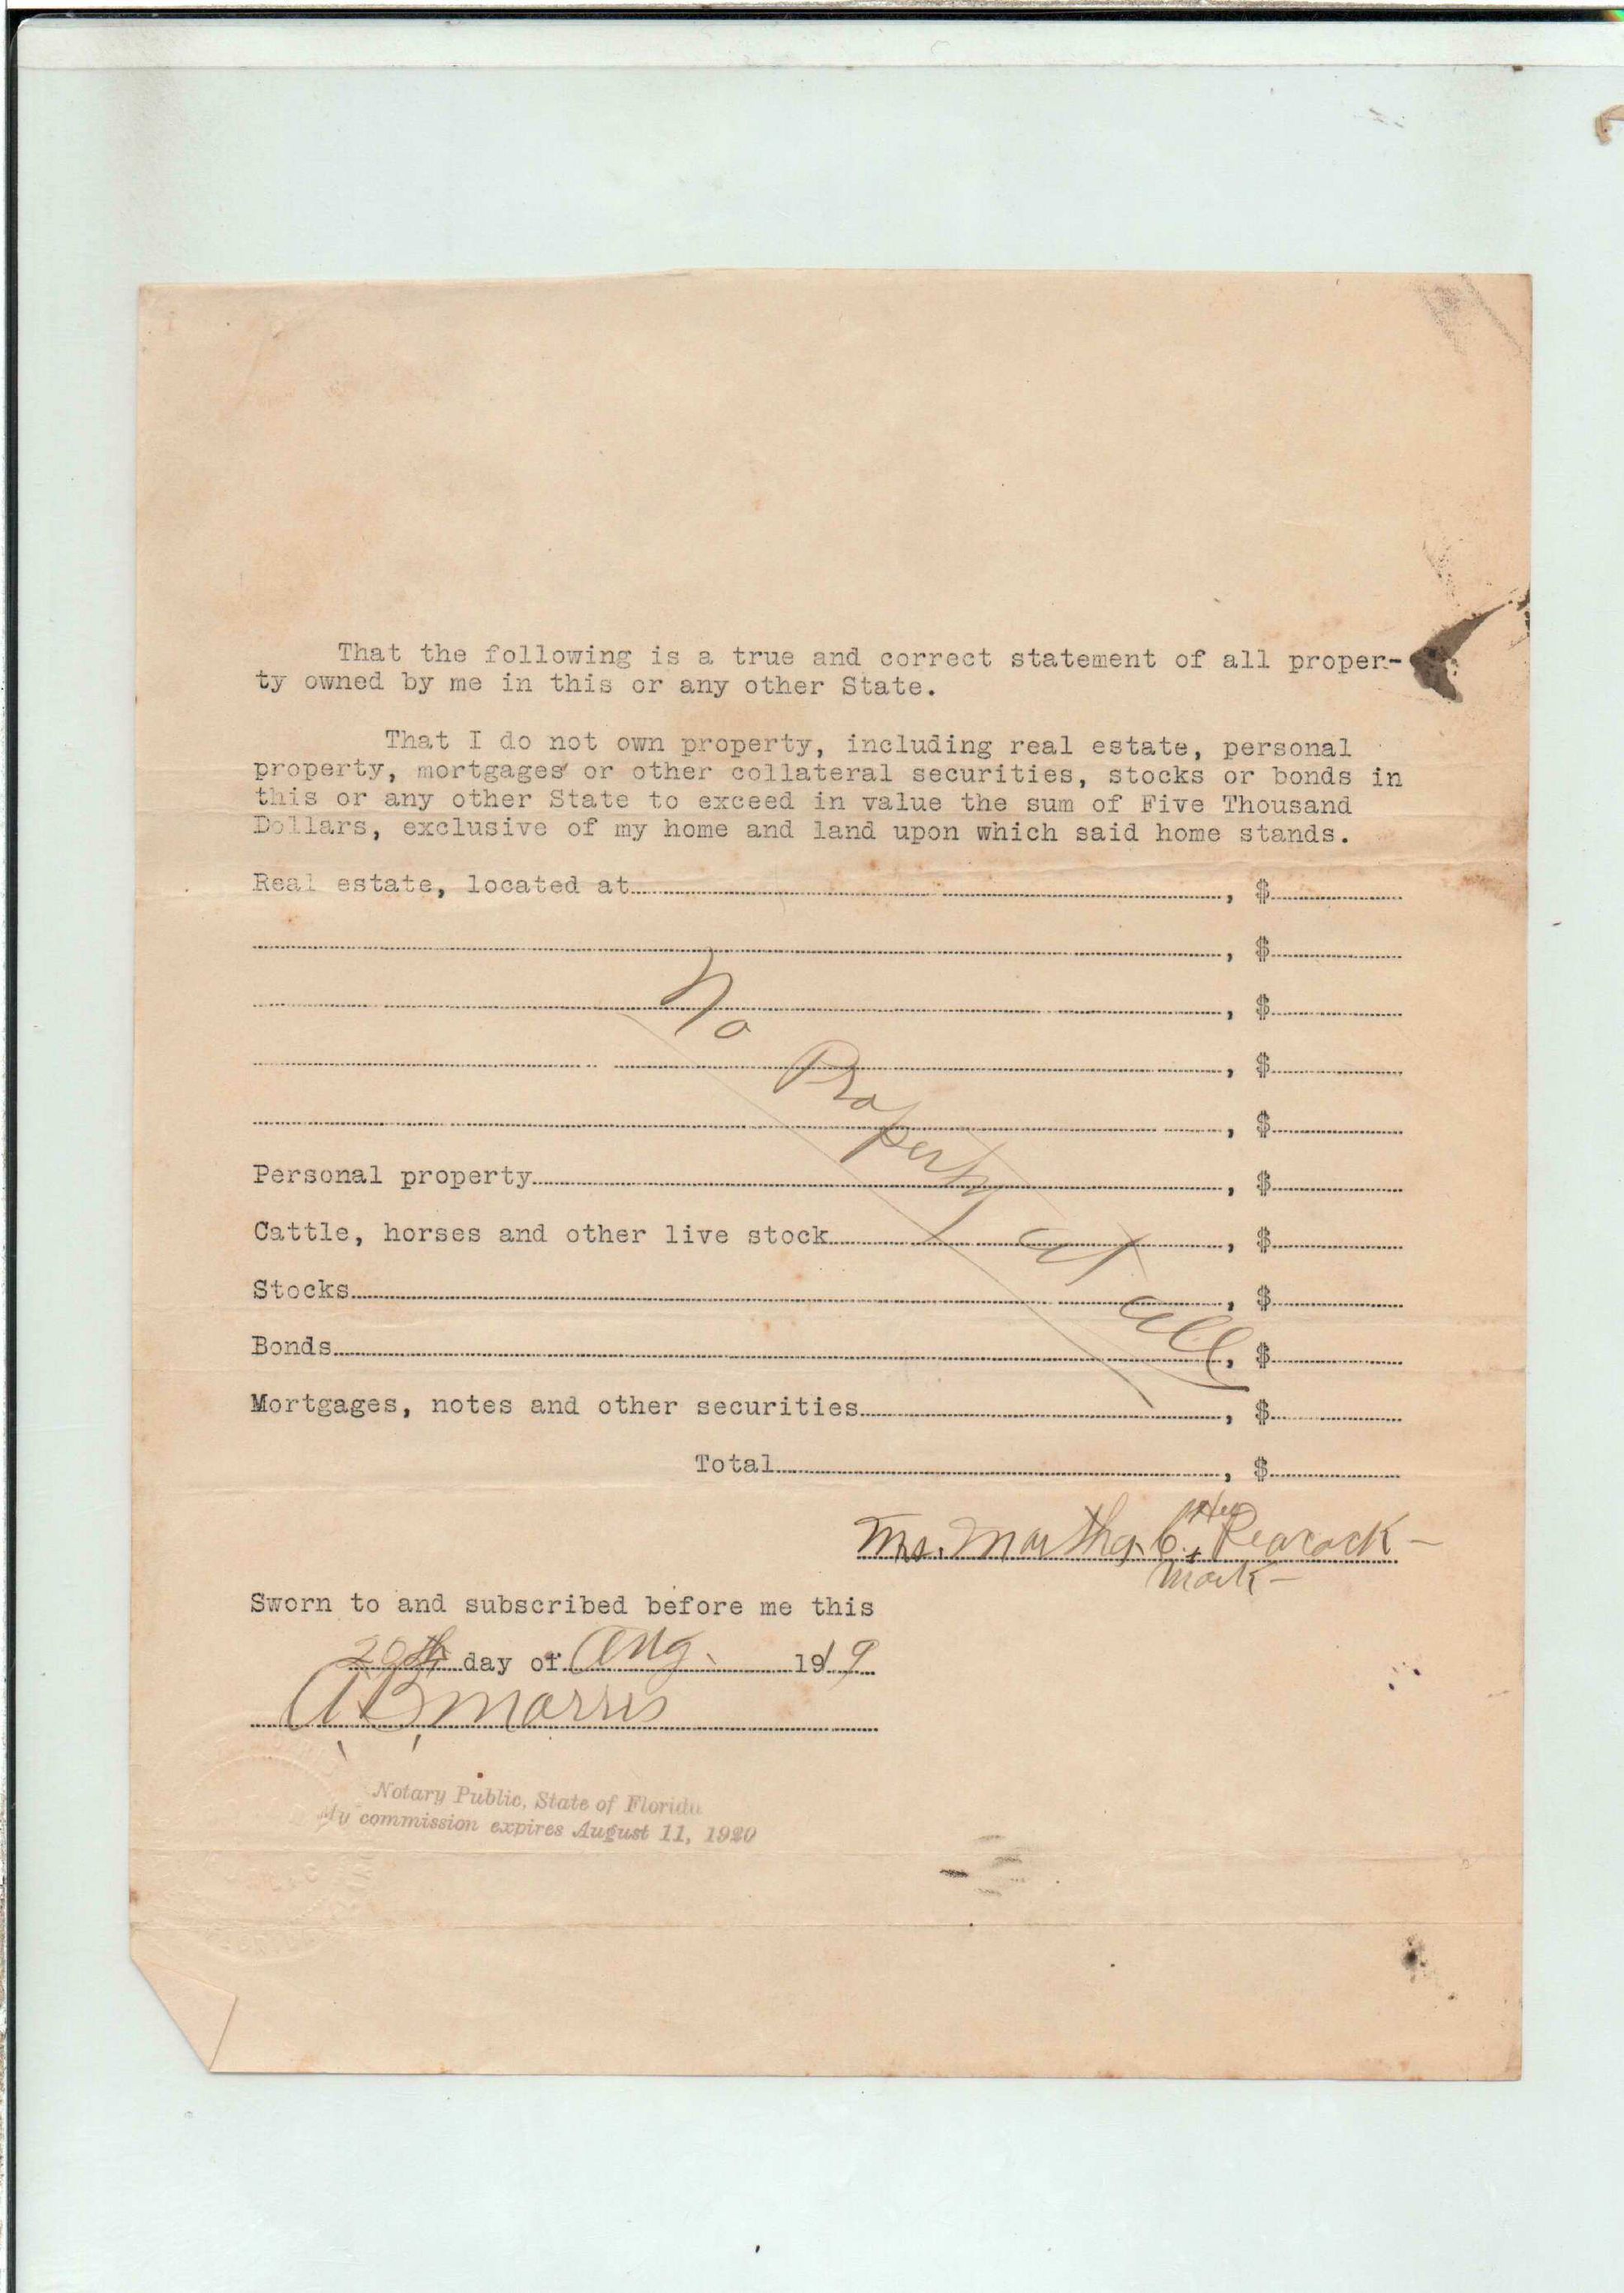 That the following is a true and correct statement of all proper-
ty owned by me in this or any other State.
That I do not own property, including real estate, personal
property, mortgages or other collateral securities, stocks or bonds in
this or any other State to exceed in value the sum of Five Thousand
Dollars, exclusive of my home and land upon which said home stands.
Real estate, located at , $
, $
, $
, $
, $
Personal property , $
Cattle, horses and other live stock , $
Stocks , $
Bonds , $
Mortgages, notes and other securities , $
Total , $
No Property at all
Her
Mrs. Martha C. + Peacock
mark
Sworn to and subscribed before me this
29th day of Aug. 1919
A B Morris
Notary Public, State of Florida
My commission expires August 11, 1920